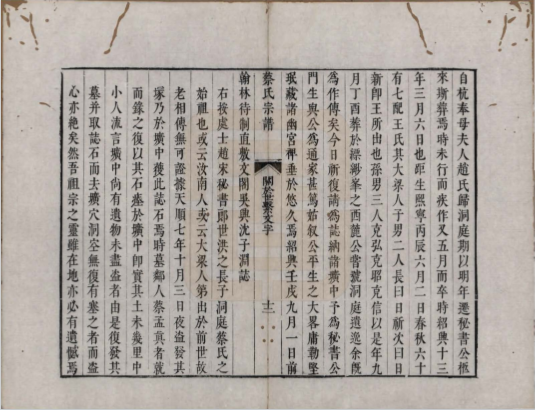 自杭奉母夫人趙氏歸洞庭期以明年遷秘書公柩
來斯葬焉時未行而疾作又五月而卒時紹興十三
年三月六日也距生熙寧丙辰六月二日春秋六十
有七配王氏其大梁人子男二人長曰日新次曰日
新卽王所出也孫男三人克弘克耶克信以是年九
月丁酉葬於縹緲峯之西麓公嘗號洞庭遺逸余旣
為作傳矣今日新復請為誌納諸壙中予為秘書公
門生與公為通家甚篤故叙公平生之大畧庸勒堅
珉藏諸幽宮禆垂於悠久焉紹興壬戌九月一日前
翰林待制直敷文閣吳興沈子淵誌
蔡氏宗譜
關於世繫文字
十二
右按處士趙宋秘書郎世洪之長子洞庭蔡氏之
始祖也或云汝南人或云大梁人第出於前世故
老相傳無可證據天順七年十月三日夜盜發其
塚乃於壙中獲此誌石焉時墓鄰人蔡孟真者就
而錄之復以其石瘞於壙中卽實其土未幾里中
小人流言壙中尙有遺物未盡盜者由是復發其
墓并取誌石而去壙穴洞空無復有塞之者而盜
心亦絕矣然吾祖宗之靈雖在地亦必有遺憾焉